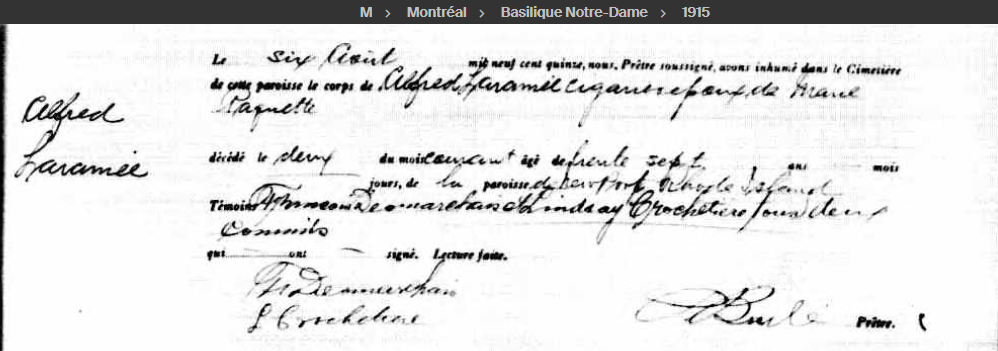 M > Montréal > Basilique Notre-Dame > 1915
Le six Août mil neuf cent quinze, nous, Prêtre soussigné, avons inhumé dans le Cimetière
de cette paroisse le corps de Alfred Laramée époux de Marie
Paquette
Alfred
Laramée
décédé le deux du mois courant âgé de trente sept ans mois
jours, de la paroisse Rhode Island
Témoins Desmarchais & Lindsay Crochetière tous deux
Commis
qui ont signé. Lecture faite.
L Crochetière
Prêtre.